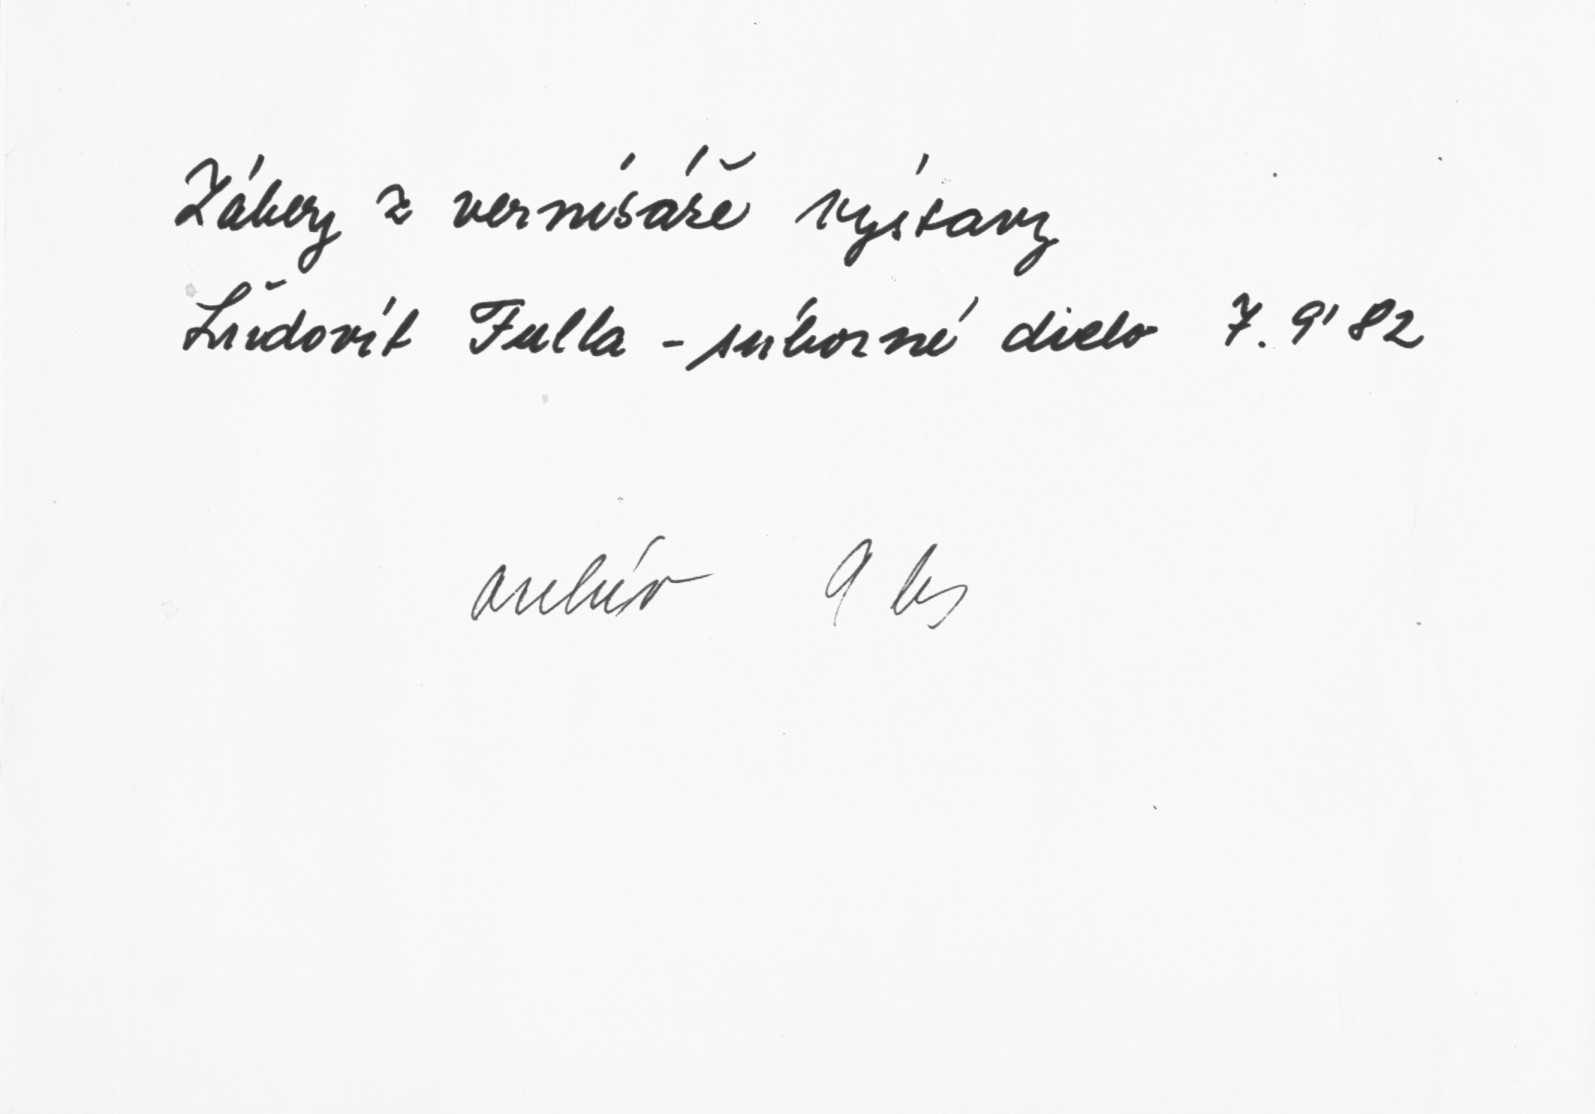 Zábery z vernisáže výstavy
Ľudovít Fulla - súborné dielo 7. 9' 82
archív 9 ks